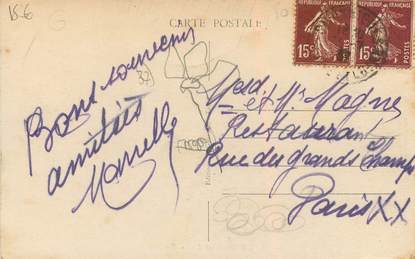 156
CARTE POSTALE
REPUBLIQUE FRANÇAISE
15c POSTES
REPUBLIQUE FRANÇAISE
15c POSTES
32
Bons souvenirs
amitiés
Marcelle
et Mr Magne
Restaurant
Rue des Grands Champs
Paris XX